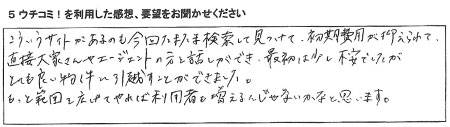 5 ウチコミ!を利用した感想、要望をお聞かせください
こういうサイトがあるのも今回たまたま検索して見つけて、初期費用が抑えられて、
直接大家さんやエージェントの方と話しができ、最初は少し不安でしたが
とても良い物件に引越すことができました。
もっと範囲を広げてやれば利用者も増えるんじゃないかなと思います。